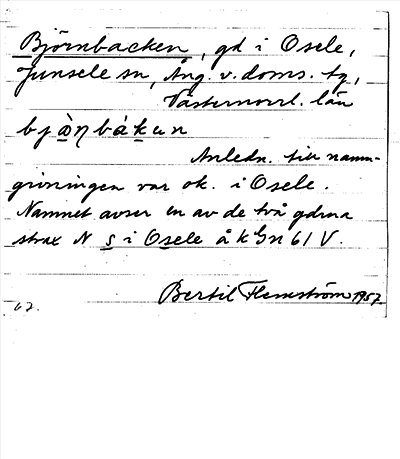 Björnbacken, gd i Osele,
Junsele sn, Ång. v. doms. tg,
Västernorrl. län
bjònbákun
Anledn. till namn-
givningen var ok. i Osele.
Namnet avser en av de två gdrna
strax N s i Osele å kGn 61 V.
Bertil Flemström 1957.